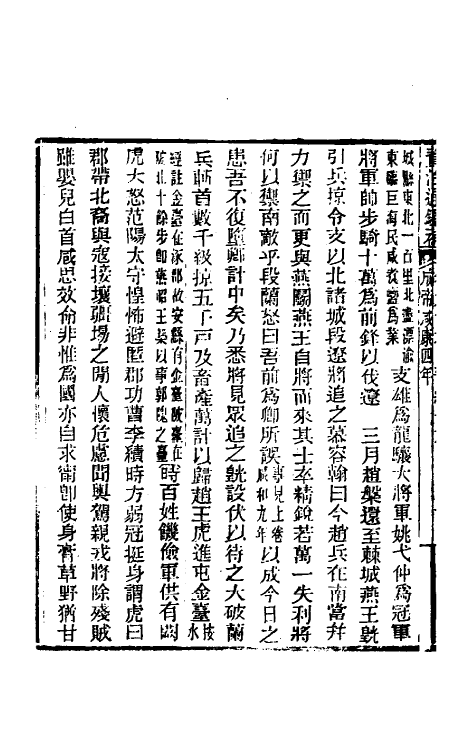 成帝咸康四年
城縣東北一百里北盡漂渝
東臨巨海民咸復鹽爲業
支雄爲龍驤大將軍姚弋仲爲冠軍
將軍帥步騎十萬爲前鋒以伐遼　三月趙槃還至棘城燕王皝
引兵掠令支以北諸城段遼將追之慕容翰曰今趙兵在南當幷
力禦之而更與燕鬭燕王自將而來其士卒精銳若萬一失利將
何以禦南敵乎段蘭怒曰吾前爲卿所誤
事見上卷
咸和九年
以成今日之
患吾不復墮卿計中矣乃悉將見衆追之皝設伏以待之大破蘭
兵斬首數千級掠五千戶及畜產萬計以歸趙王虎進屯金臺
水
經註金臺在
故安縣有金臺
北十餘步
燕昭王
以事郭隗之
時百姓饑儉軍供有闕
虎大怒范陽太守惶怖避匿郡功曹李績時方弱冠挺身謂虎曰
郡帶北裔與寇接壤疆埸之閒人懷危慮聞輿駕親戎將除殘賊
雖嬰兒白首咸思效命非惟爲國亦自求甯卽使身膏草野猶甘